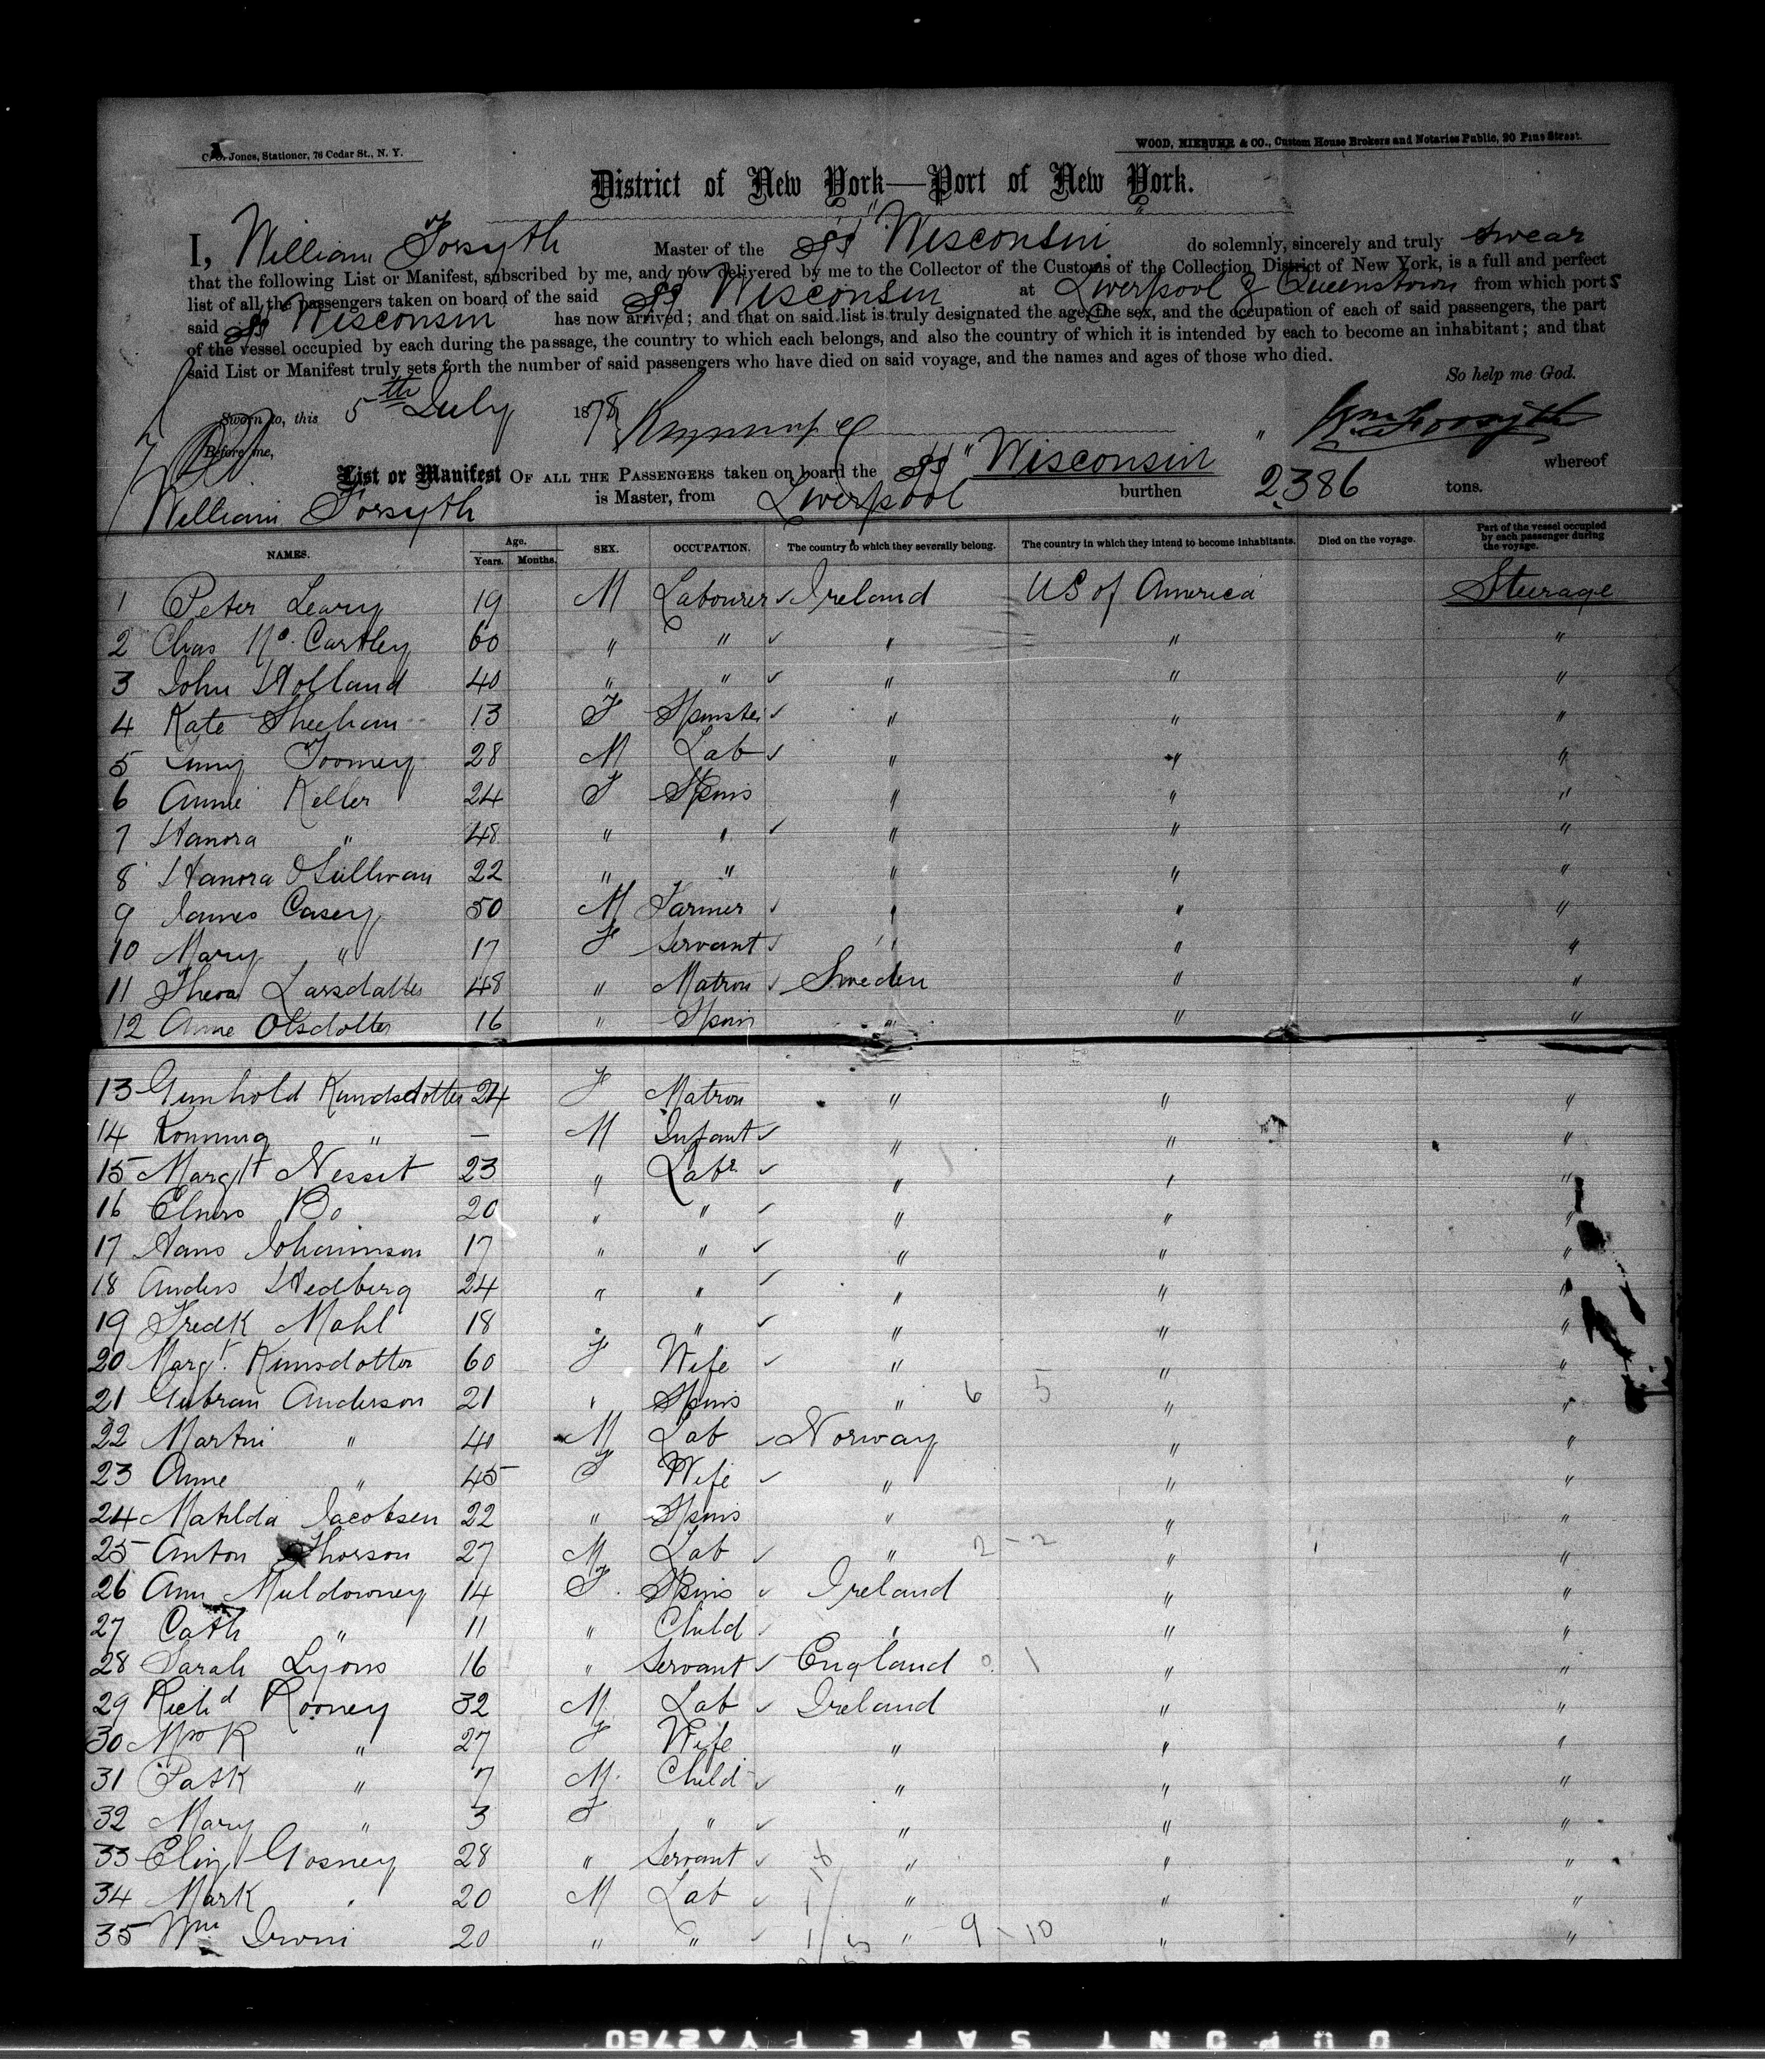 C. C. Jones, Stationer, 76 Cedar St., N. Y.
WOOD, NIEBUHR & CO., Custom House Brokers and Notaries Public, 20 Pine Street.
District of New York—Port of New York.
I, William Forsyth Master of the SS "Wisconsin" do solemnly, sincerely and truly swear
that the following List or Manifest, subscribed by me, and now delivered by me to the Collector of the Customs of the Collection District of New York, is a full and perfect
list of all the passengers taken on board of the said SS Wisconsin at Liverpool & Queenstown from which ports
said SS Wisconsin has now arrived; and that on said list is truly designated the age, the sex, and the occupation of each of said passengers, the part
of the vessel occupied by each during the passage, the country to which each belongs, and also the country of which it is intended by each to become an inhabitant; and that
said List or Manifest truly sets forth the number of said passengers who have died on said voyage, and the names and ages of those who died.
So help me God.
Sworn to, this 5th July 1878 Wm Forsyth
Before me,
List or Manifest OF ALL THE PASSENGERS taken on board the SS "Wisconsin whereof
William Forsyth is Master, from Liverpool burthen 2386 tons.
NAMES. Age. Years. Months. SEX. OCCUPATION. The country to which they severally belong. The country in which they intend to become inhabitants. Died on the voyage. Part of the vessel occupied by each passenger during the voyage.
1 Peter Leary 19 M Labourer ✓ Ireland US of America Steerage
2 Chas Mc Carthy 60 " " ✓ " " "
3 John Holland 40 " " ✓ " " "
4 Kate Sheehan 13 F Spinster ✓ " " "
5 Toomey 28 M Lab ✓ " " "
6 Annie Keller 24 F Spins " " "
7 Hanora " 48 " " ✓ " " "
8 Hanora OSullivan 22 " " " " "
9 James Casey 50 M Farmer ✓ " " "
10 Mary " 17 F Servant ✓ " " "
11 Larsdatter 48 " Matron ✓ Sweden " "
12 Anne Olsdotter 16 " Spin " " "
13 Gunhold Kundsdotter 24 F Matron " " "
14 " — M Infant ✓ " " "
15 Margt Nesset 23 " Labr ✓ " " "
16 Bo 20 " " ✓ " " "
17 Hans Johannson 17 " " ✓ " " "
18 Anders Hedberg 24 " " ✓ " " "
19 Fredk Mahl 18 " " ✓ " " "
20 Margt. Kunsdotter 60 F Wife ✓ " " "
21 Gubran Anderson 21 " Spins " 6 5 " "
22 Martin " 40 M Lab ✓ Norway " "
23 Anne " 45 F Wife ✓ " " "
24 Matilda Jacobsen 22 " Spins " " "
25 Anton Thorson 27 M Lab ✓ " 2-2 " "
26 Ann Muldowney 14 F. Spins ✓ Ireland " "
27 Cath " 11 " Child ✓ " " "
28 Sarah Lyons 16 " Servant ✓ England 0 1 " "
29 Richd Rooney 32 M Lab ✓ Ireland " "
30 Mrs R " 27 F Wife " " "
31 Patk " 7 M. Child ✓ " " "
32 Mary " 3 F " ✓ " " "
33 Eliz Gosney 28 " Servant ✓ " " "
34 Mark " 20 M Lab ✓ " " "
35 Wm. Irvin 20 " " ✓ " 9 10 " "
DUPONT SAFETY 2760